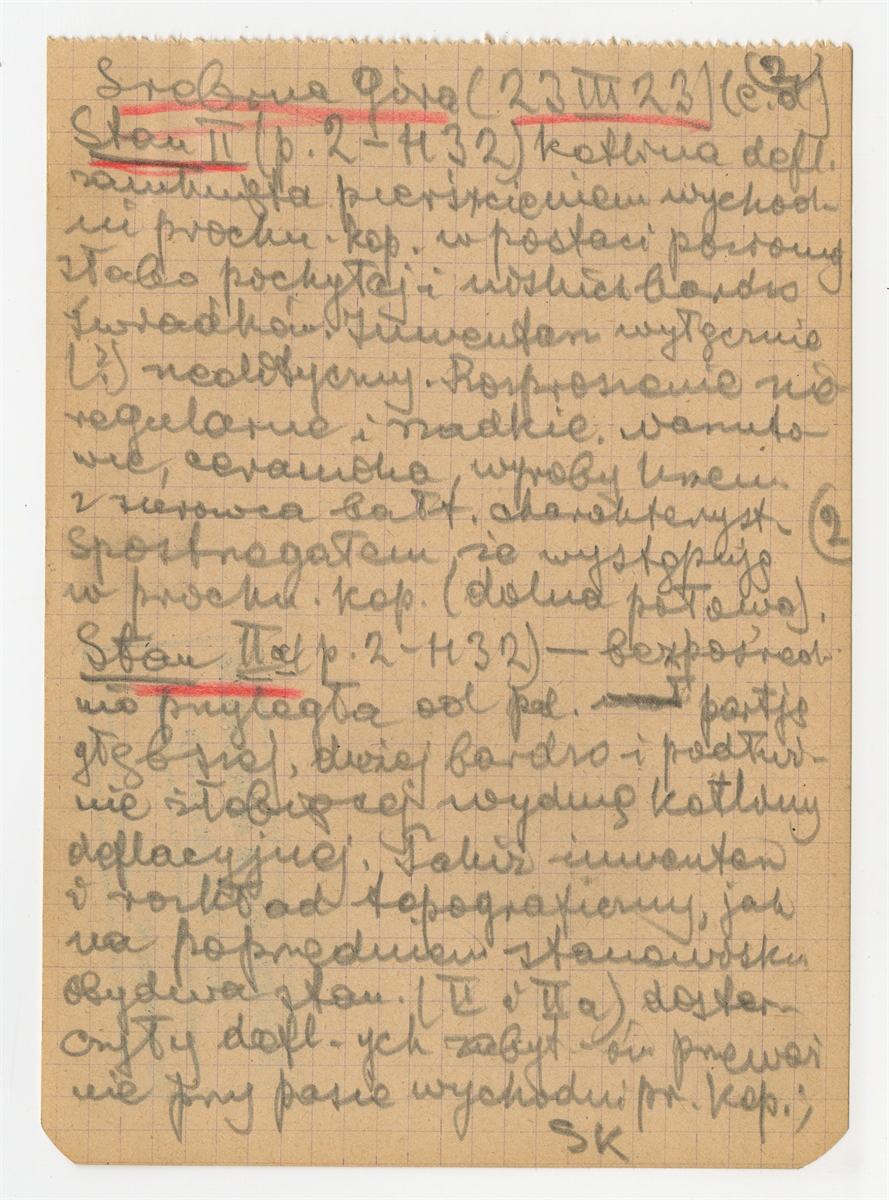 (2)
Srebrna Góra (23 III 23) (c.d)
Stan II (p. 2-H32) kotlina defl.
zamknięta pierścieniem wychod-
ni próchn. kop. w postaci poziomej
słabo pochyłej i niskich bardzo
świadków. Inwentarz wyłącznie
(?) neolityczny. Rozproszenie nie
regularne i rzadkie.
ceramika, wyroby krzem.
z narzutowca bałt. charakteryst.
(2)
Spostrzegałem, że występują
w próchn. kop. (dolna połowa).
Stan IIa (p. 2-H32) — bezpośred-
nio przyległa od pd. partję
głębszej, dużej bardzo i podłuż-
nie żłobiącej wydmę kotliny
deflacyjnej. Takiż inwentarz
i rozkład topograficzny, jak
na poprzedniem stanowisku
obydwa stan. (II i IIa) dostar-
czyły defl-ych zabyt-ów przeważ
nie przy pasie wychodni pr. kop.;
SK